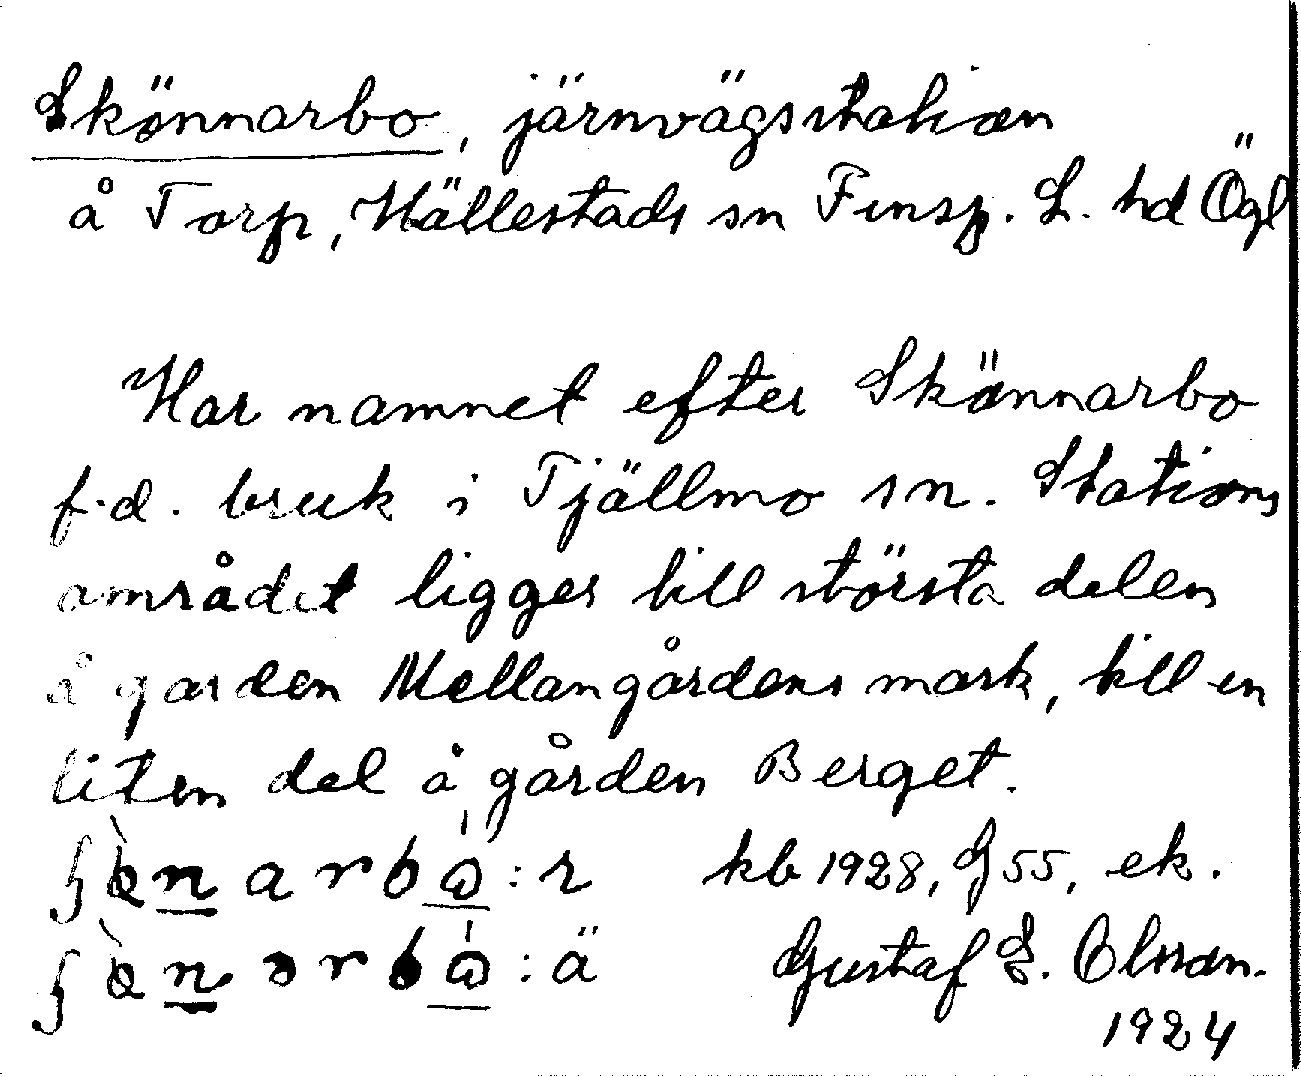 Skönnarbo, järnvägsstation
å Torp, Hällestads sn Finsp. L. hd Ögl
Har namnet efter Skönnarbo
f.d. bruk i Tjällmo sn. Stations
området ligger till största delen
å garden Mellangårdens mark, till en
liten del å gården Berget.
kb 1928, G 55, ek.
Gustaf E. Olsson.
1924